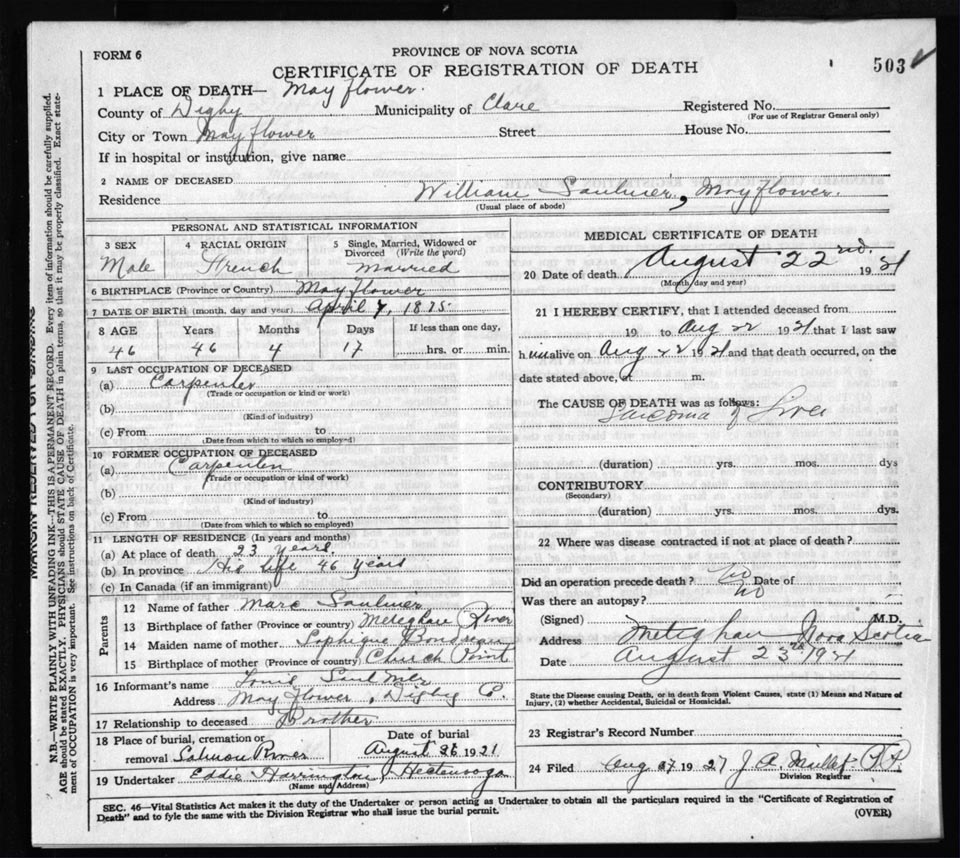 FORM 6
PROVINCE OF NOVA SCOTIA
CERTIFICATE OF REGISTRATION OF DEATH
503
1 PLACE OF DEATH— Mayflower.
County of Digby Municipality of Clare Registered No.
(For use of Registrar General only)
City or Town Mayflower Street House No.
If in hospital or institution, give name
2 NAME OF DECEASED
William Saulnier, Mayflower.
Residence
(Usual place of abode)
PERSONAL AND STATISTICAL INFORMATION
3 SEX 4 RACIAL ORIGIN 5 Single, Married, Widowed or Divorced (Write the word)
Male French Married
6 BIRTHPLACE (Province or Country) Mayflower
7 DATE OF BIRTH (month, day and year) April 7, 1875
8 AGE Years Months Days If less than one day,
46 46 4 17 hrs. or min.
9 LAST OCCUPATION OF DECEASED
(a) Carpenter
(Trade or occupation or kind or work)
(b)
(Kind of industry)
(c) From to
(Date from which to which so employed)
10 FORMER OCCUPATION OF DECEASED
(a) Carpenter
(Trade or occupation or kind of work)
(b)
(Kind of industry)
(c) From to
(Date from which to which so employed)
11 LENGTH OF RESIDENCE (In years and months)
(a) At place of death 23 years
(b) In province His life 46 years
(c) In Canada (if an immigrant)
Parents
12 Name of father Marc Saulnier
13 Birthplace of father (Province or country) Meteghan River
14 Maiden name of mother Sophique Boudreau
15 Birthplace of mother (Province or country) Church Point
16 Informant's name Louis Saulnier
Address Mayflower, Digby Co.
17 Relationship to deceased Brother
18 Place of burial, cremation or removal Salmon River
Date of burial
August 26 1921
19 Undertaker Eddie Harrington Hectanooga
(Name and Address)
MEDICAL CERTIFICATE OF DEATH
20 Date of death August 22nd. 1921
(Month, day and year)
21 I HEREBY CERTIFY, that I attended deceased from
19 to Aug 22 1921 that I last saw
him alive on Aug 22 1921 and that death occurred, on the
date stated above, at m.
The CAUSE OF DEATH was as follows:
Sarcoma of Liver
(duration) yrs. mos. dys
CONTRIBUTORY
(Secondary)
(duration) yrs. mos. dys.
22 Where was disease contracted if not at place of death?
Did an operation precede death? No Date of
Was there an autopsy? No
(Signed) M.D.
Address Meteghan Nova Scotia
Date August 23rd 1921
State the Disease causing Death, or in death from Violent Causes, state (1) Means and Nature of
Injury, (2) whether Accidental, Suicidal or Homicidal.
23 Registrar's Record Number
24 Filed Aug 27 1927 J. A. P.P.
Division Registrar
SEC. 46—Vital Statistics Act makes it the duty of the Undertaker or person acting as Undertaker to obtain all the particulars required in the "Certificate of Registration of
Death" and to fyle the same with the Division Registrar who shall issue the burial permit.
(OVER)
MARGIN RESERVED FOR BINDING
N.B.—WRITE PLAINLY WITH UNFADING INK—THIS IS A PERMANENT RECORD. Every item of information should be carefully supplied.
AGE should be stated EXACTLY. PHYSICIANS should STATE CAUSE OF DEATH in plain terms, so that it may be properly classified. Exact state-
ment of OCCUPATION is very important. See instructions on back of Certificate.